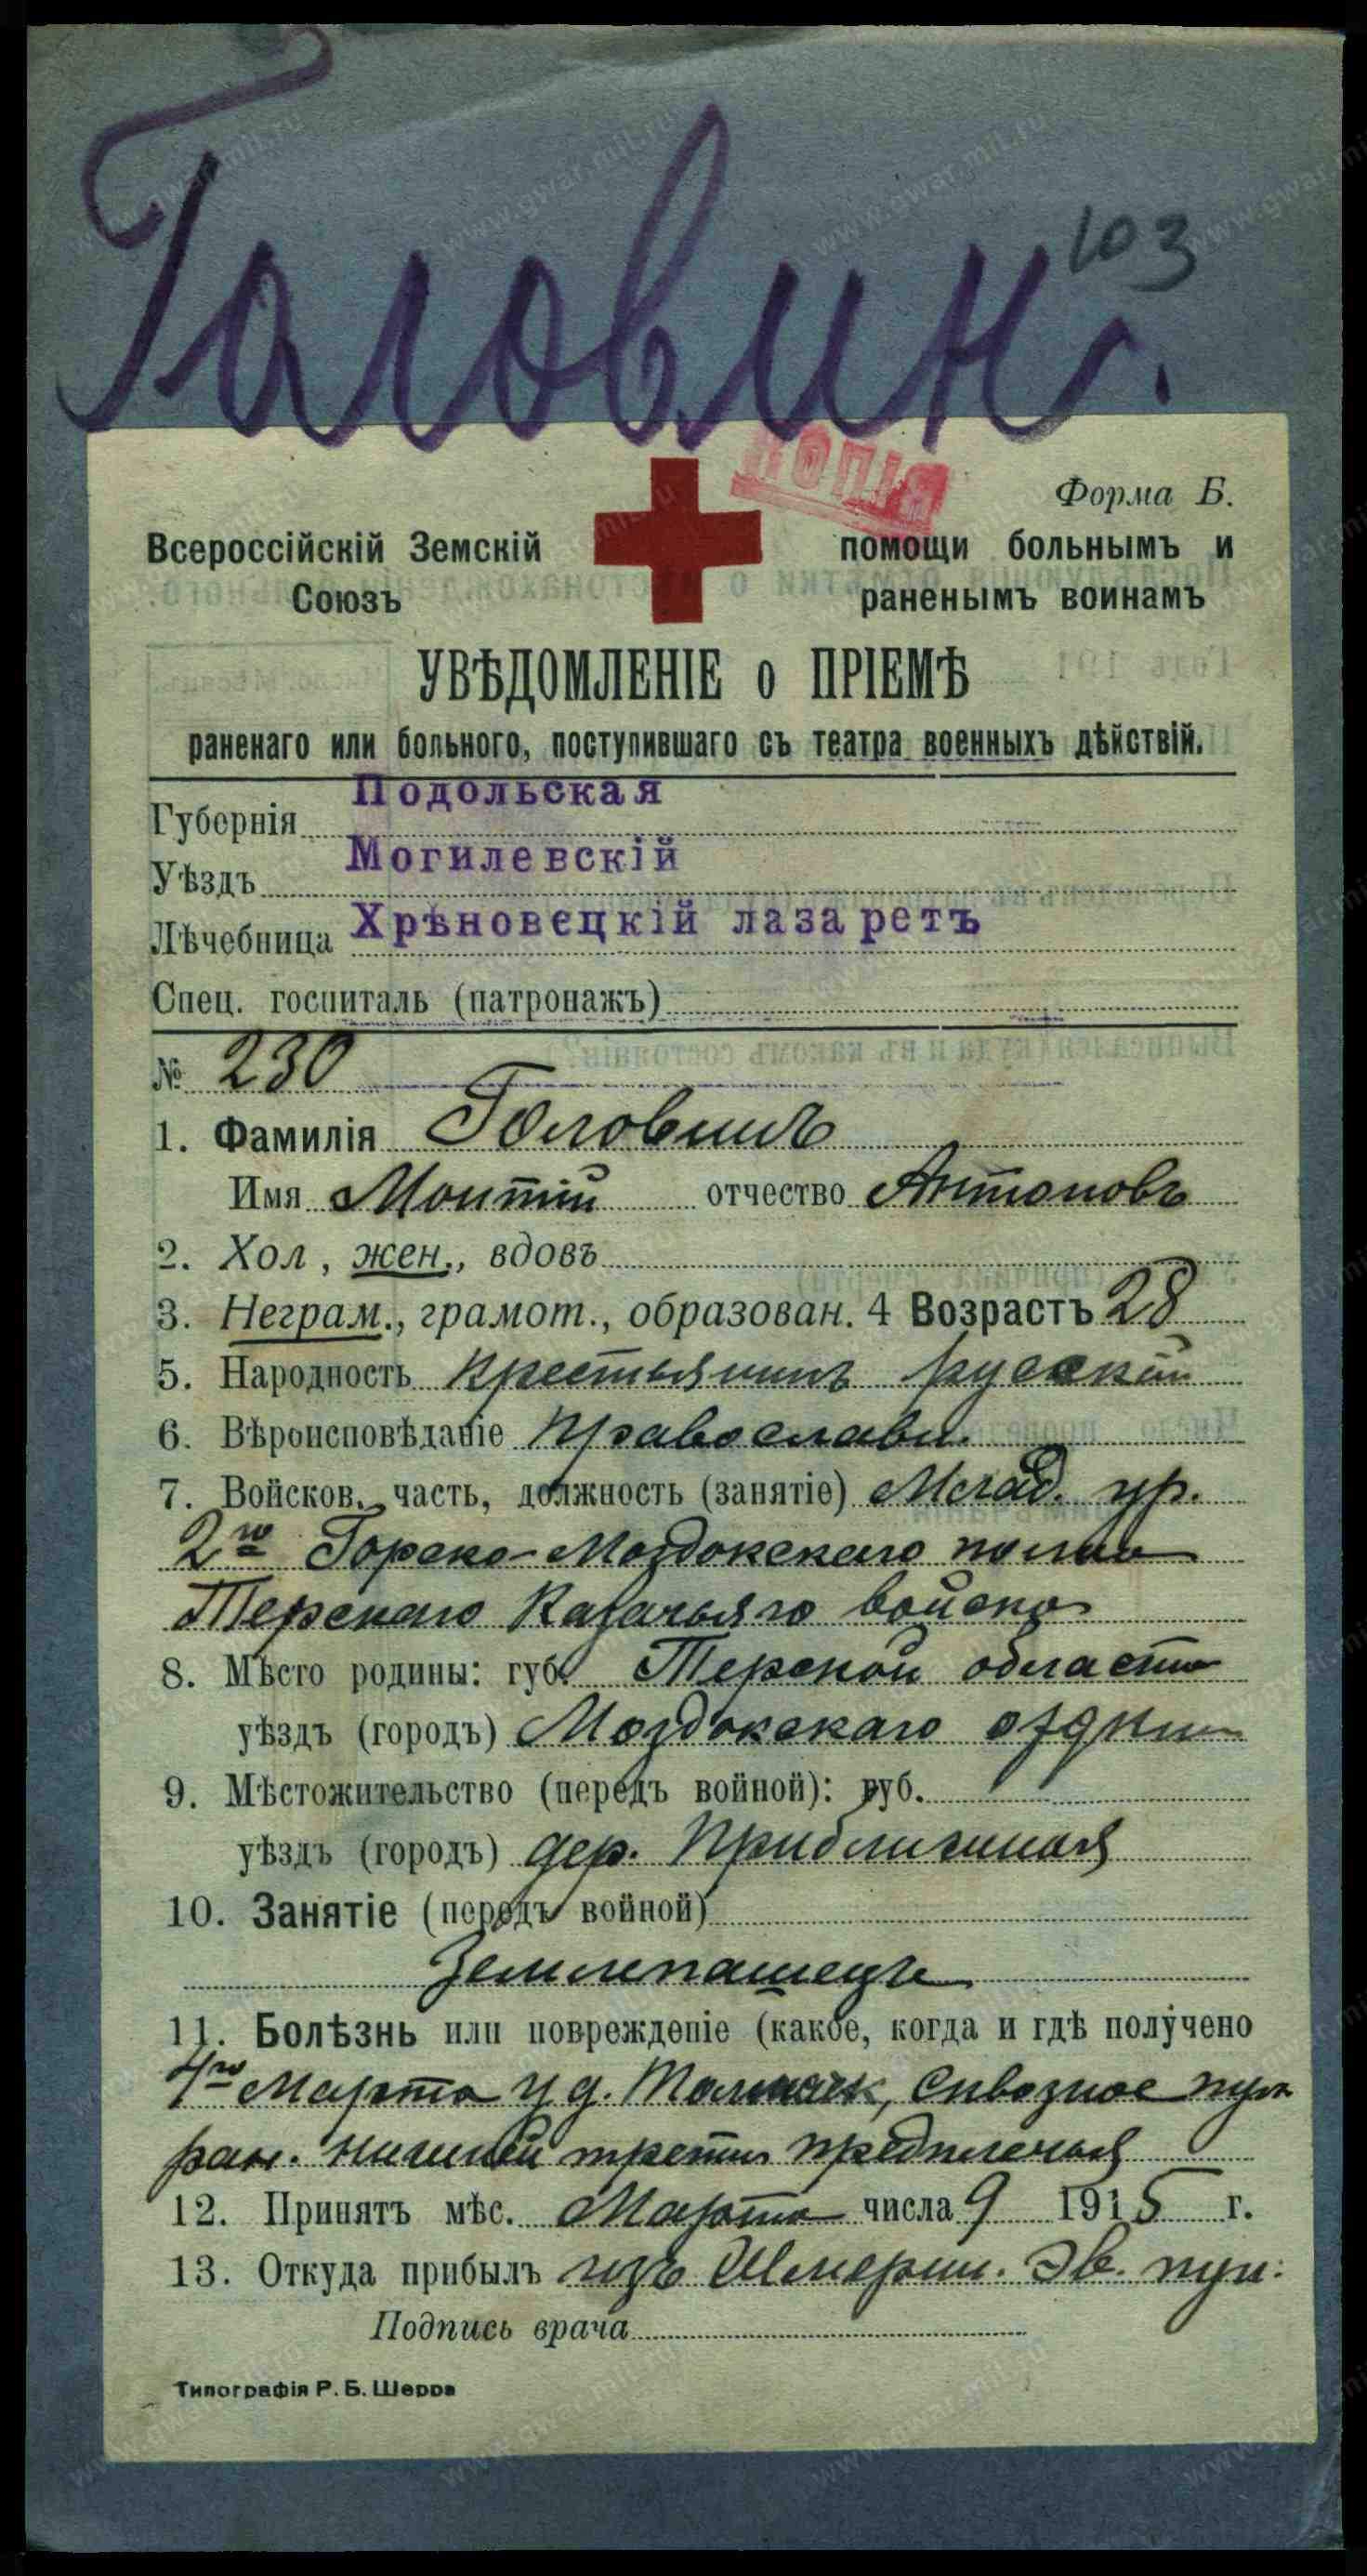 Головин.
103
КОПІЯ
Форма Б.
Всероссійскій Земскій Союзъ
помощи больнымъ и раненымъ воинамъ
УВѢДОМЛЕНІЕ о ПРІЕМѢ
раненаго или больного, поступившаго съ театра военныхъ дѣйствій.
Губернія Подольская
Уѣздъ Могилевскій
Лѣчебница Хрѣновецкій лазаретъ
Спец. госпиталь (патронажъ)
№ 230
1. Фамилія Головинъ
Имя Монтій отчество Антоновъ
2. Хол, жен., вдовъ
3. Неграм., грамот., образован. 4 Возрастъ 28
5. Народность Крестьянинъ русскій
6. Вѣроисповѣданіе Православн.
7. Войсков. часть, должность (занятіе) Млад. ур.
2го Горско-Моздокскаго полка
Терскаго Казачьяго войска
8. Мѣсто родины: губ. Терской области
уѣздъ (городъ) Моздокскаго отдѣла
9. Мѣстожительство (передъ войной): губ.
уѣздъ (городъ) дер. Приближная
10. Занятіе (передъ войной)
Землепашецъ
11. Болѣзнь или поврежденіе (какое, когда и гдѣ получено
4го Марта у д. Толмачик, Сквозное пул.
ран. нижней трети предплечья
12. Принятъ мѣс. Марта числа 9 1915 г.
13. Откуда прибылъ изъ Жмерин. Эв. пун.
Подпись врача
Типографія Р. Б. Шерра
www.gwar.mil.ru